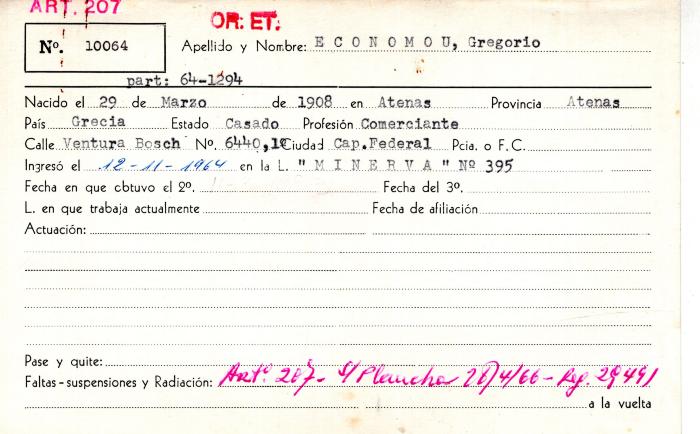 ART. 207
OR: ET:
Nº. 10064
Apellido y Nombre: E C O N O M O U, Gregorio
part: 64-1294
Nacido el 29 de Marzo de 1908 en Atenas Provincia Atenas
País Grecia Estado Casado Profesión Comerciante
Calle Ventura Bosch Nº. 6440, Ciudad Cap.Federal Pcia. o F.C.
Ingresó el 12-11-1964 en la L. "M I N E R V A" Nº 395
Fecha en que obtuvo el 2º. Fecha del 3º.
L. en que trabaja actualmente Fecha de afiliación
Actuación:
Pase y quite:
Faltas-suspensiones y Radiación: Artº. 207- S/Plancha /4/66-
a la vuelta